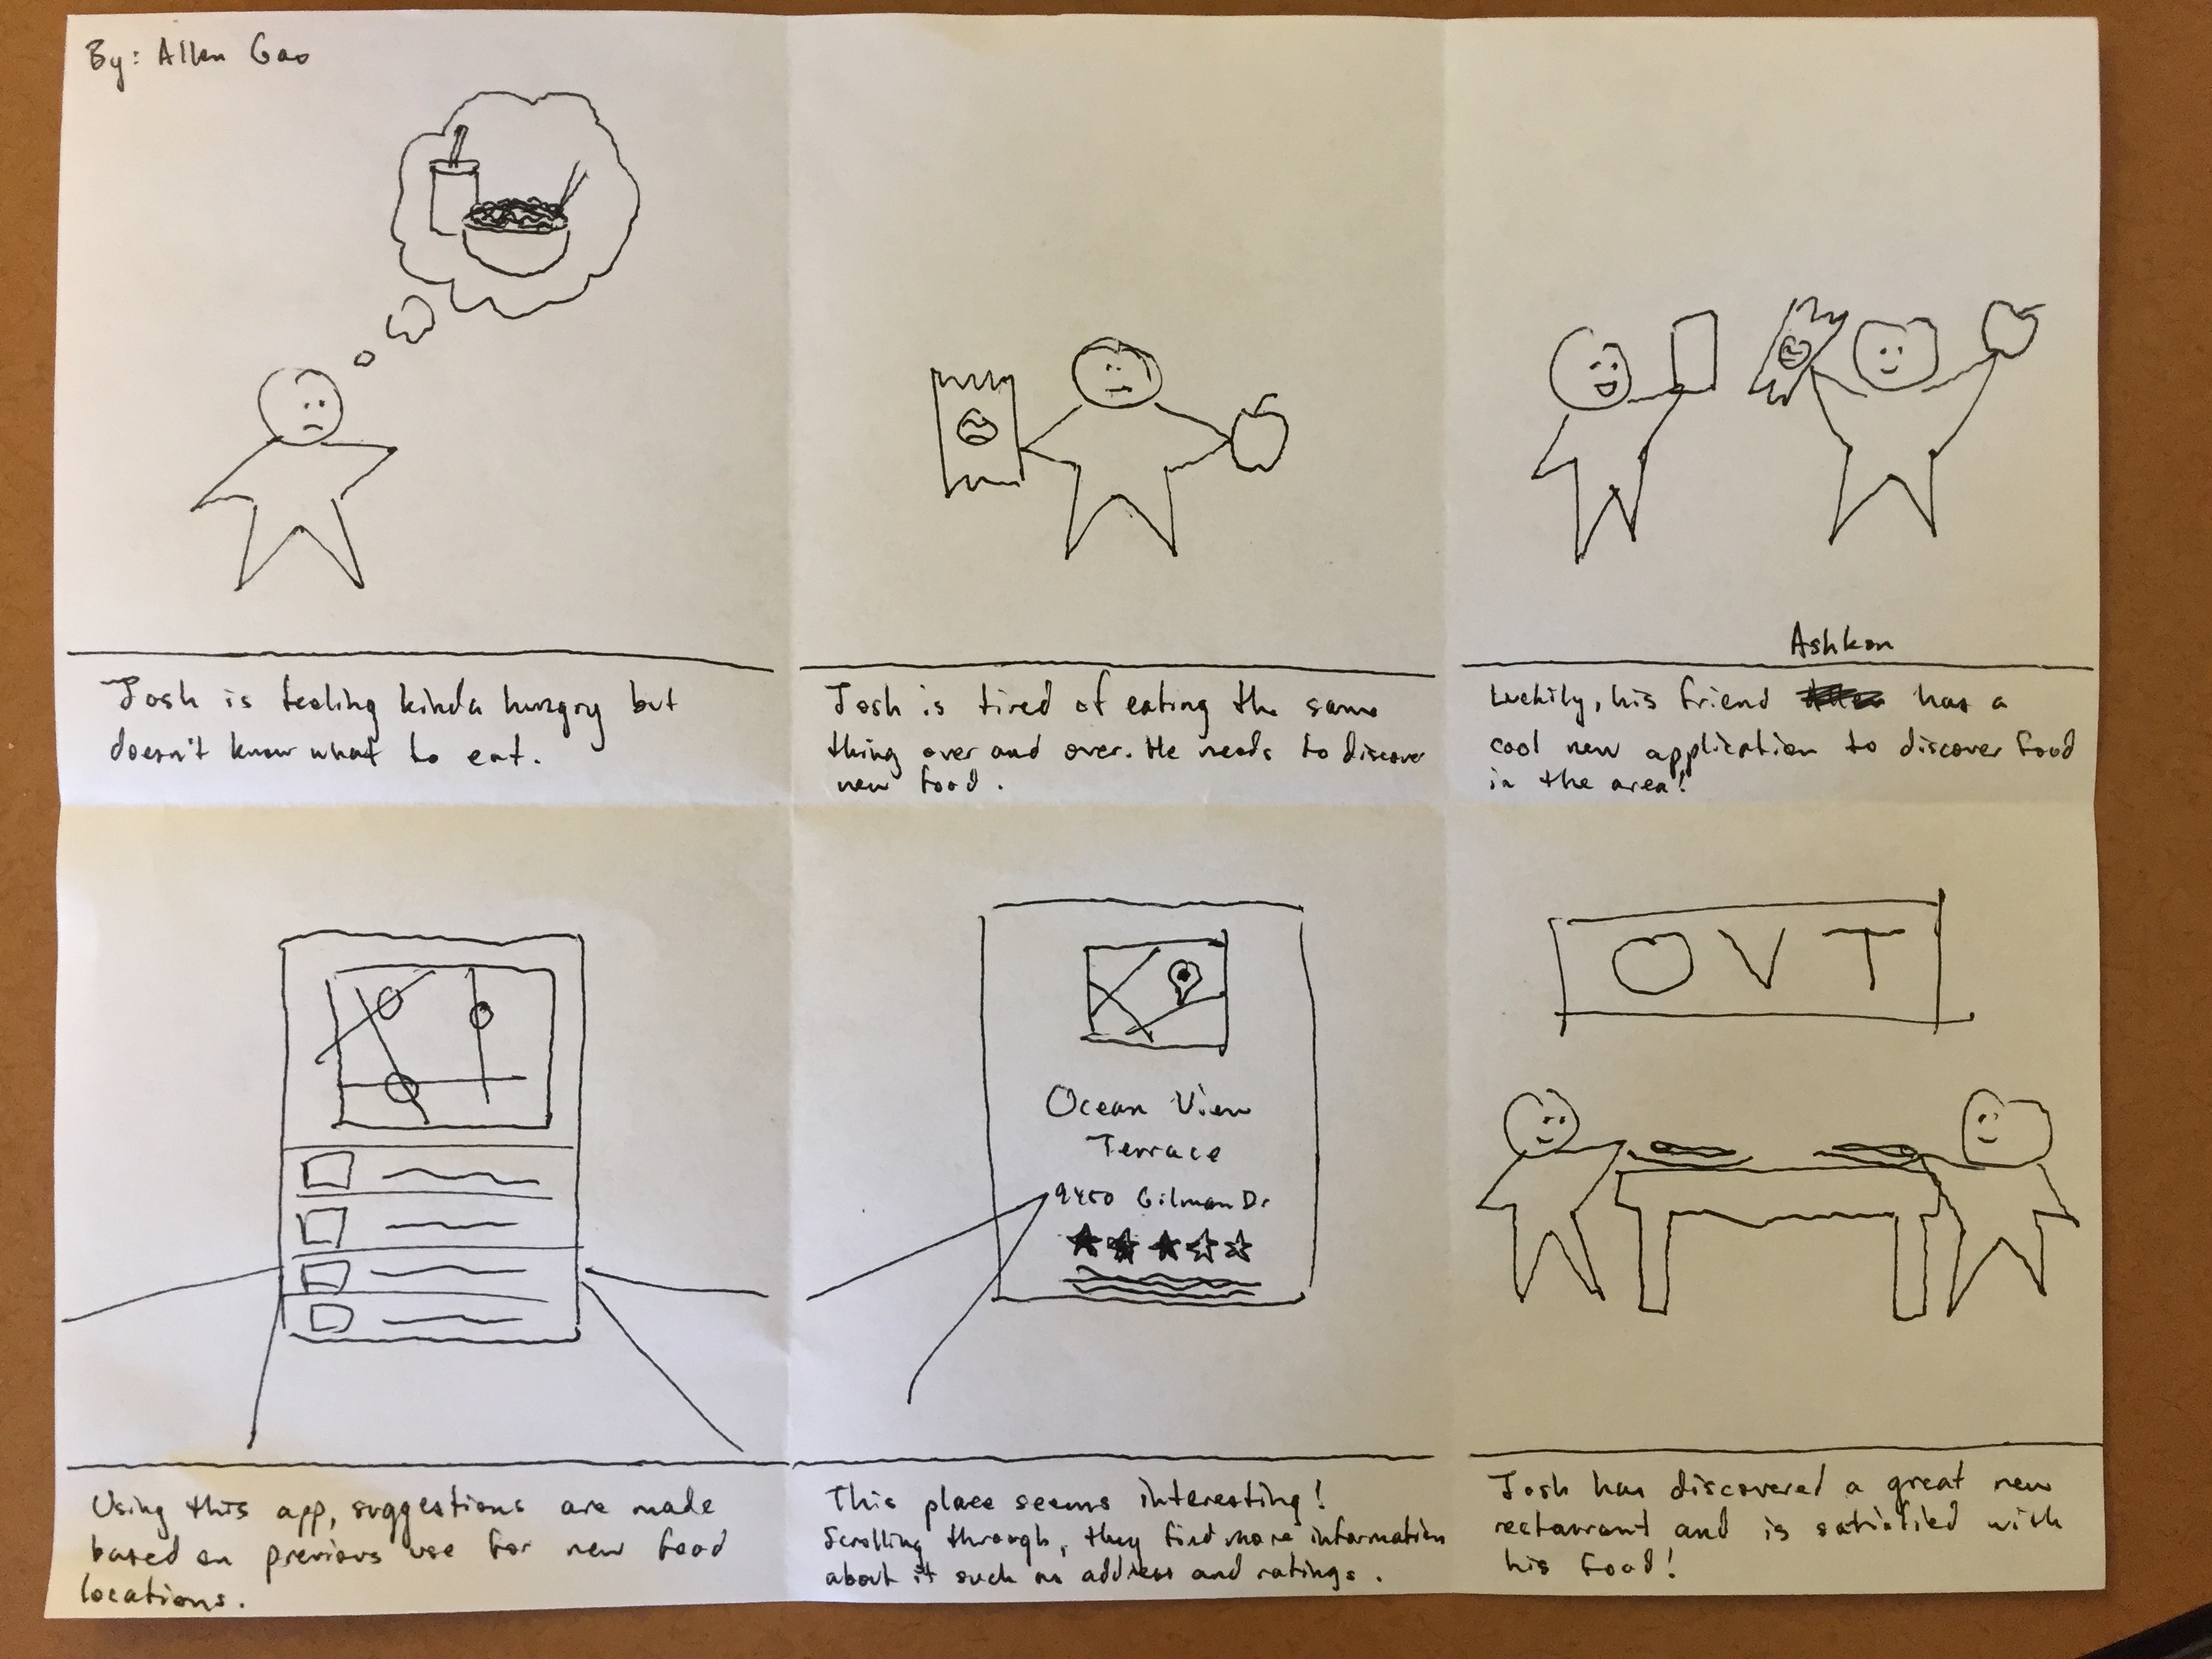 By: Allen Gao
Josh is feeling kinda hungry but
doesn't know what to eat.
Josh is tired of eating the same
thing over and over. He needs to discover
new food.
Ashkon
Luckily, his friend has a
cool new application to discover food
in the area!
Using this app, suggestions are made
based on previous use for new food
locations.
Ocean View
Terrace
9450 Gilman Dr
This place seems interesting!
Scrolling through, they find more information
about it such as address and ratings.
OVT
Josh has discovered a great new
restaurant and is satisfied with
his food!